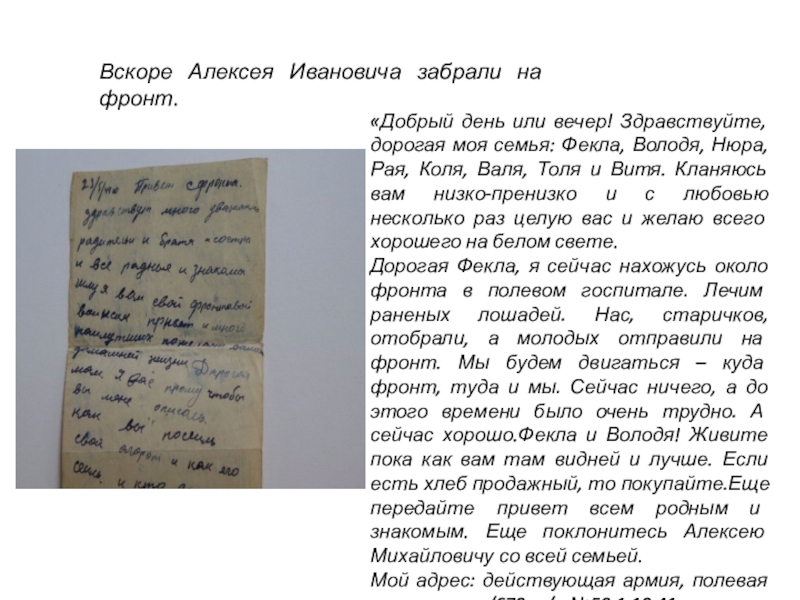 Вскоре Алексея Ивановича забрали на
фронт.
«Добрый день или вечер! Здравствуйте,
дорогая моя семья: Фекла, Володя, Нюра,
Рая, Коля, Валя, Толя и Витя. Кланяюсь
вам низко-пренизко и с любовью
несколько раз целую вас и желаю всего
хорошего на белом свете.
Дорогая Фекла, я сейчас нахожусь около
фронта в полевом госпитале. Лечим
раненых лошадей. Нас, старичков,
отобрали, а молодых отправили на
фронт. Мы будем двигаться – куда
фронт, туда и мы. Сейчас ничего, а до
этого времени было очень трудно. А
сейчас хорошо.Фекла и Володя! Живите
пока как вам там видней и лучше. Если
есть хлеб продажный, то покупайте.Еще
передайте привет всем родным и
знакомым. Еще поклонитесь Алексею
Михайловичу со всей семьей.
Мой адрес: действующая армия, полевая
Привет с фронта.
здравствуйте много уважаемы
родители и братя и состры
и все родные и знакомы
шлу я вам свой фронтовой
воинский привет и много
наилутших
домашней жизни Дорогая
мам я прошу чтобы
вы мене описаль
как вы посеиль
свой огород и как его